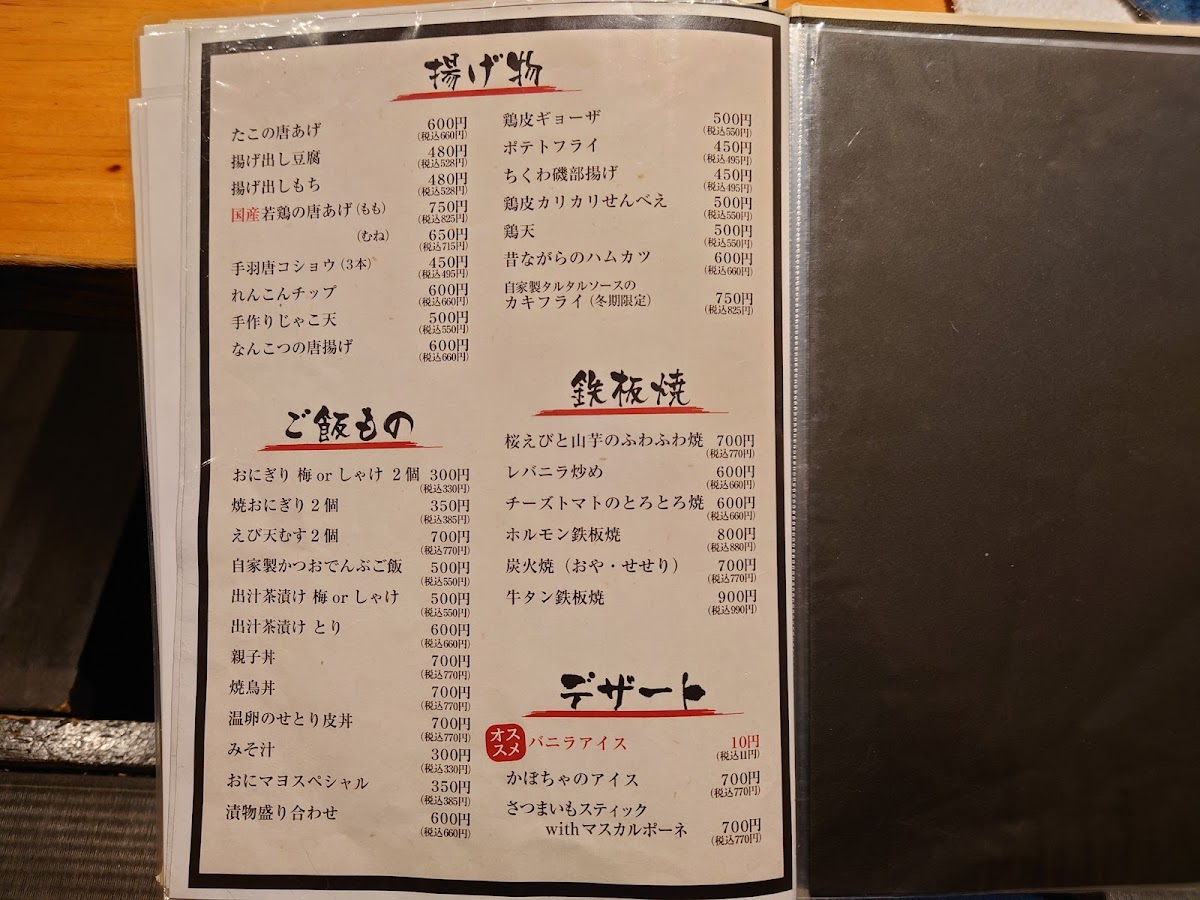 揚げ物
たこの唐あげ 600円
(税込660円)
揚げ出し豆腐 480円
(税込528円)
揚げ出しもち 480円
(税込528円)
国産若鶏の唐あげ(もも) 750円
(税込825円)
(むね) 650円
(税込715円)
手羽唐コショウ(3本) 450円
(税込495円)
れんこんチップ 600円
(税込660円)
手作りじゃこ天 500円
(税込550円)
なんこつの唐揚げ 600円
(税込660円)
鶏皮ギョーザ 500円
(税込550円)
ポテトフライ 450円
(税込495円)
ちくわ磯部揚げ 450円
(税込495円)
鶏皮カリカリせんべえ 500円
(税込550円)
鶏天 500円
(税込550円)
昔ながらのハムカツ 600円
(税込660円)
自家製タルタルソースの
カキフライ(冬期限定) 750円
(税込825円)
ご飯もの
おにぎり 梅 or しゃけ 2個 300円
(税込330円)
焼おにぎり2個 350円
(税込385円)
えび天むす2個 700円
(税込770円)
自家製かつおでんぶご飯 500円
(税込550円)
出汁茶漬け 梅 or しゃけ 500円
(税込550円)
出汁茶漬け とり 600円
(税込660円)
親子丼 700円
(税込770円)
焼鳥丼 700円
(税込770円)
温卵のせとり皮丼 700円
(税込770円)
みそ汁 300円
(税込330円)
おにマヨスペシャル 350円
(税込385円)
漬物盛り合わせ 600円
(税込660円)
鉄板焼
桜えびと山芋のふわふわ焼 700円
(税込770円)
レバニラ炒め 600円
(税込660円)
チーズトマトのとろとろ焼 600円
(税込660円)
ホルモン鉄板焼 800円
(税込880円)
炭火焼(おや・せせり) 700円
(税込770円)
牛タン鉄板焼 900円
(税込990円)
デザート
オススメ バニラアイス 10円
(税込11円)
かぼちゃのアイス 700円
(税込770円)
さつまいもスティック
withマスカルポーネ 700円
(税込770円)